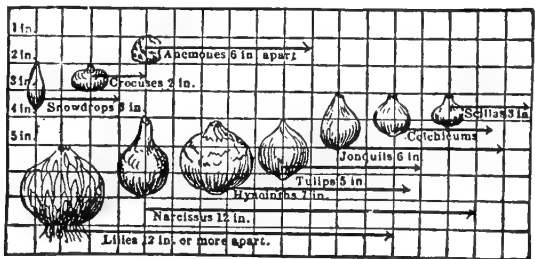 1 in.
Anemones 6 in. apart
2 in.
3 in.
Crocuses 2 in.
Snowdrops 3 in.
4 in.
Scillas 3 in.
Colchicums
5 in.
Jonquils 6 in
Tulips 5 in
Hyacinths 7 in.
Narcissus 12 in.
Lilies 12 in. or more apart.